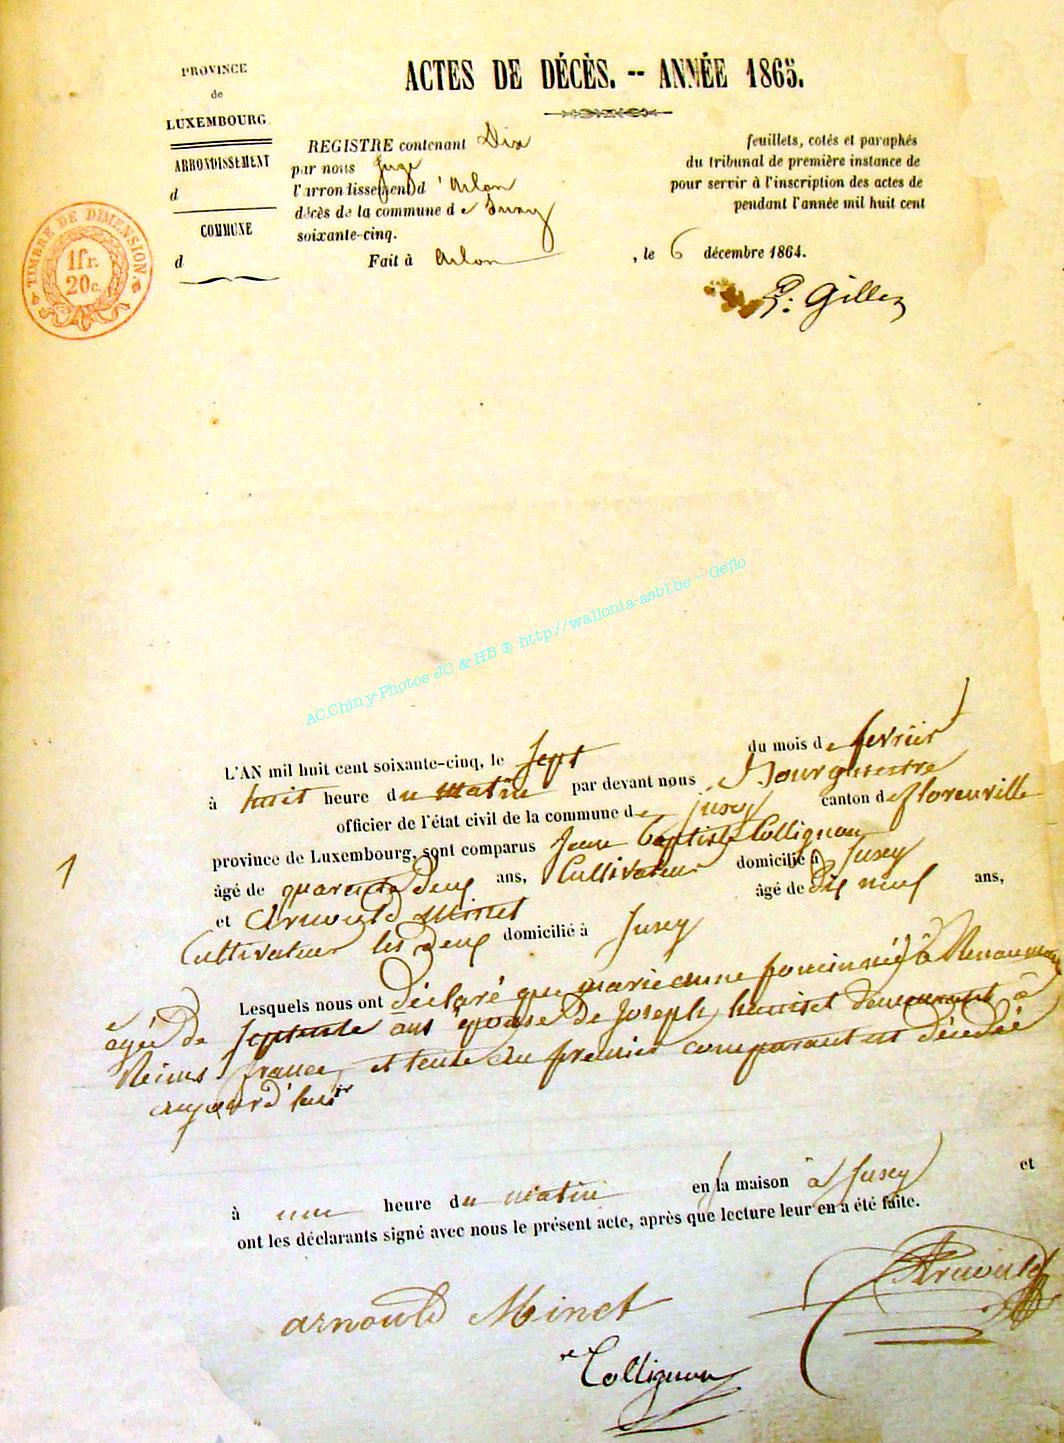 PROVINCE
de
LUXEMBOURG.
ARRONDISSEMENT
d
COMMUNE
d
TIMBRE DE DIMENSION.
1fr.
20c.
ACTES DE DÉCÈS. -- ANNÉE 1865.
REGISTRE contenant Dix feuillets, cotés et paraphés
par nous Juge du tribunal de première instance de
l'arrondissement d'Arlon pour servir à l'inscription des actes de
décès de la commune de pendant l'année mil huit cent
soixante-cinq.
Fait à Arlon, le 6 décembre 1864.
AC Chiny-Photos JC & HB @ http//wallonia-asbl.be - Geflo
1
L'AN mil huit cent soixante-cinq, le sept du mois de fevrier
à huit heure du matin par devant nous Bourgmestre
officier de l'état civil de la commune de Jusey canton de florenville
province de Luxembourg, sont comparus Jean Baptiste Collignon
âgé de quarante deux ans, Cultivateur domicilié à Jusey
et Arnould Minet âgé de dix neuf ans,
Cultivateur les deux domicilié à Jusey
Lesquels nous ont déclaré que marie anne née à
agée de septente ans épouse de Joseph demeurant à
Reims france, et tente du premier comparant est décédée
aujourd'hui
à une heure du matin en sa maison à Jusey et
ont les déclarants signé avec nous le présent acte, après que lecture leur en a été faite.
arnould Minet
Arnould
Collignon